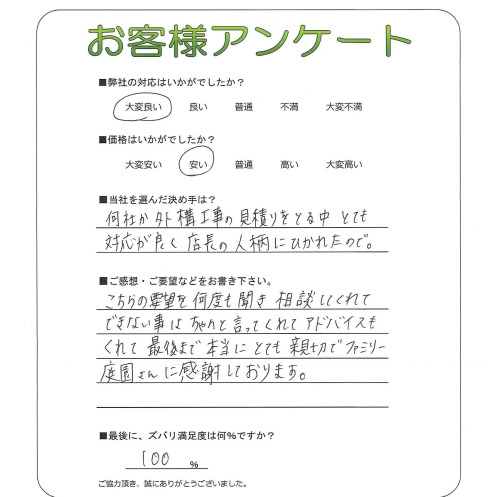 お客様アンケート
■弊社の対応はいかがでしたか？
大変良い 良い 普通 不満 大変不満
■価格はいかがでしたか？
大変安い 安い 普通 高い 大変高い
■当社を選んだ決め手は？
何社か外構工事の見積りをとる中とても
対応が良く店長の人柄にひかれたので。
■ご感想・ご要望などをお書き下さい。
こちらの要望を何度も聞き相談しくれて
できない事はちゃんと言ってくれてアドバイスも
くれて最後まで本当にとても親切でファミリー
庭園さんに感謝しております。
■最後に、ズバリ満足度は何％ですか？
100 %
ご協力頂き、誠にありがとうございました。